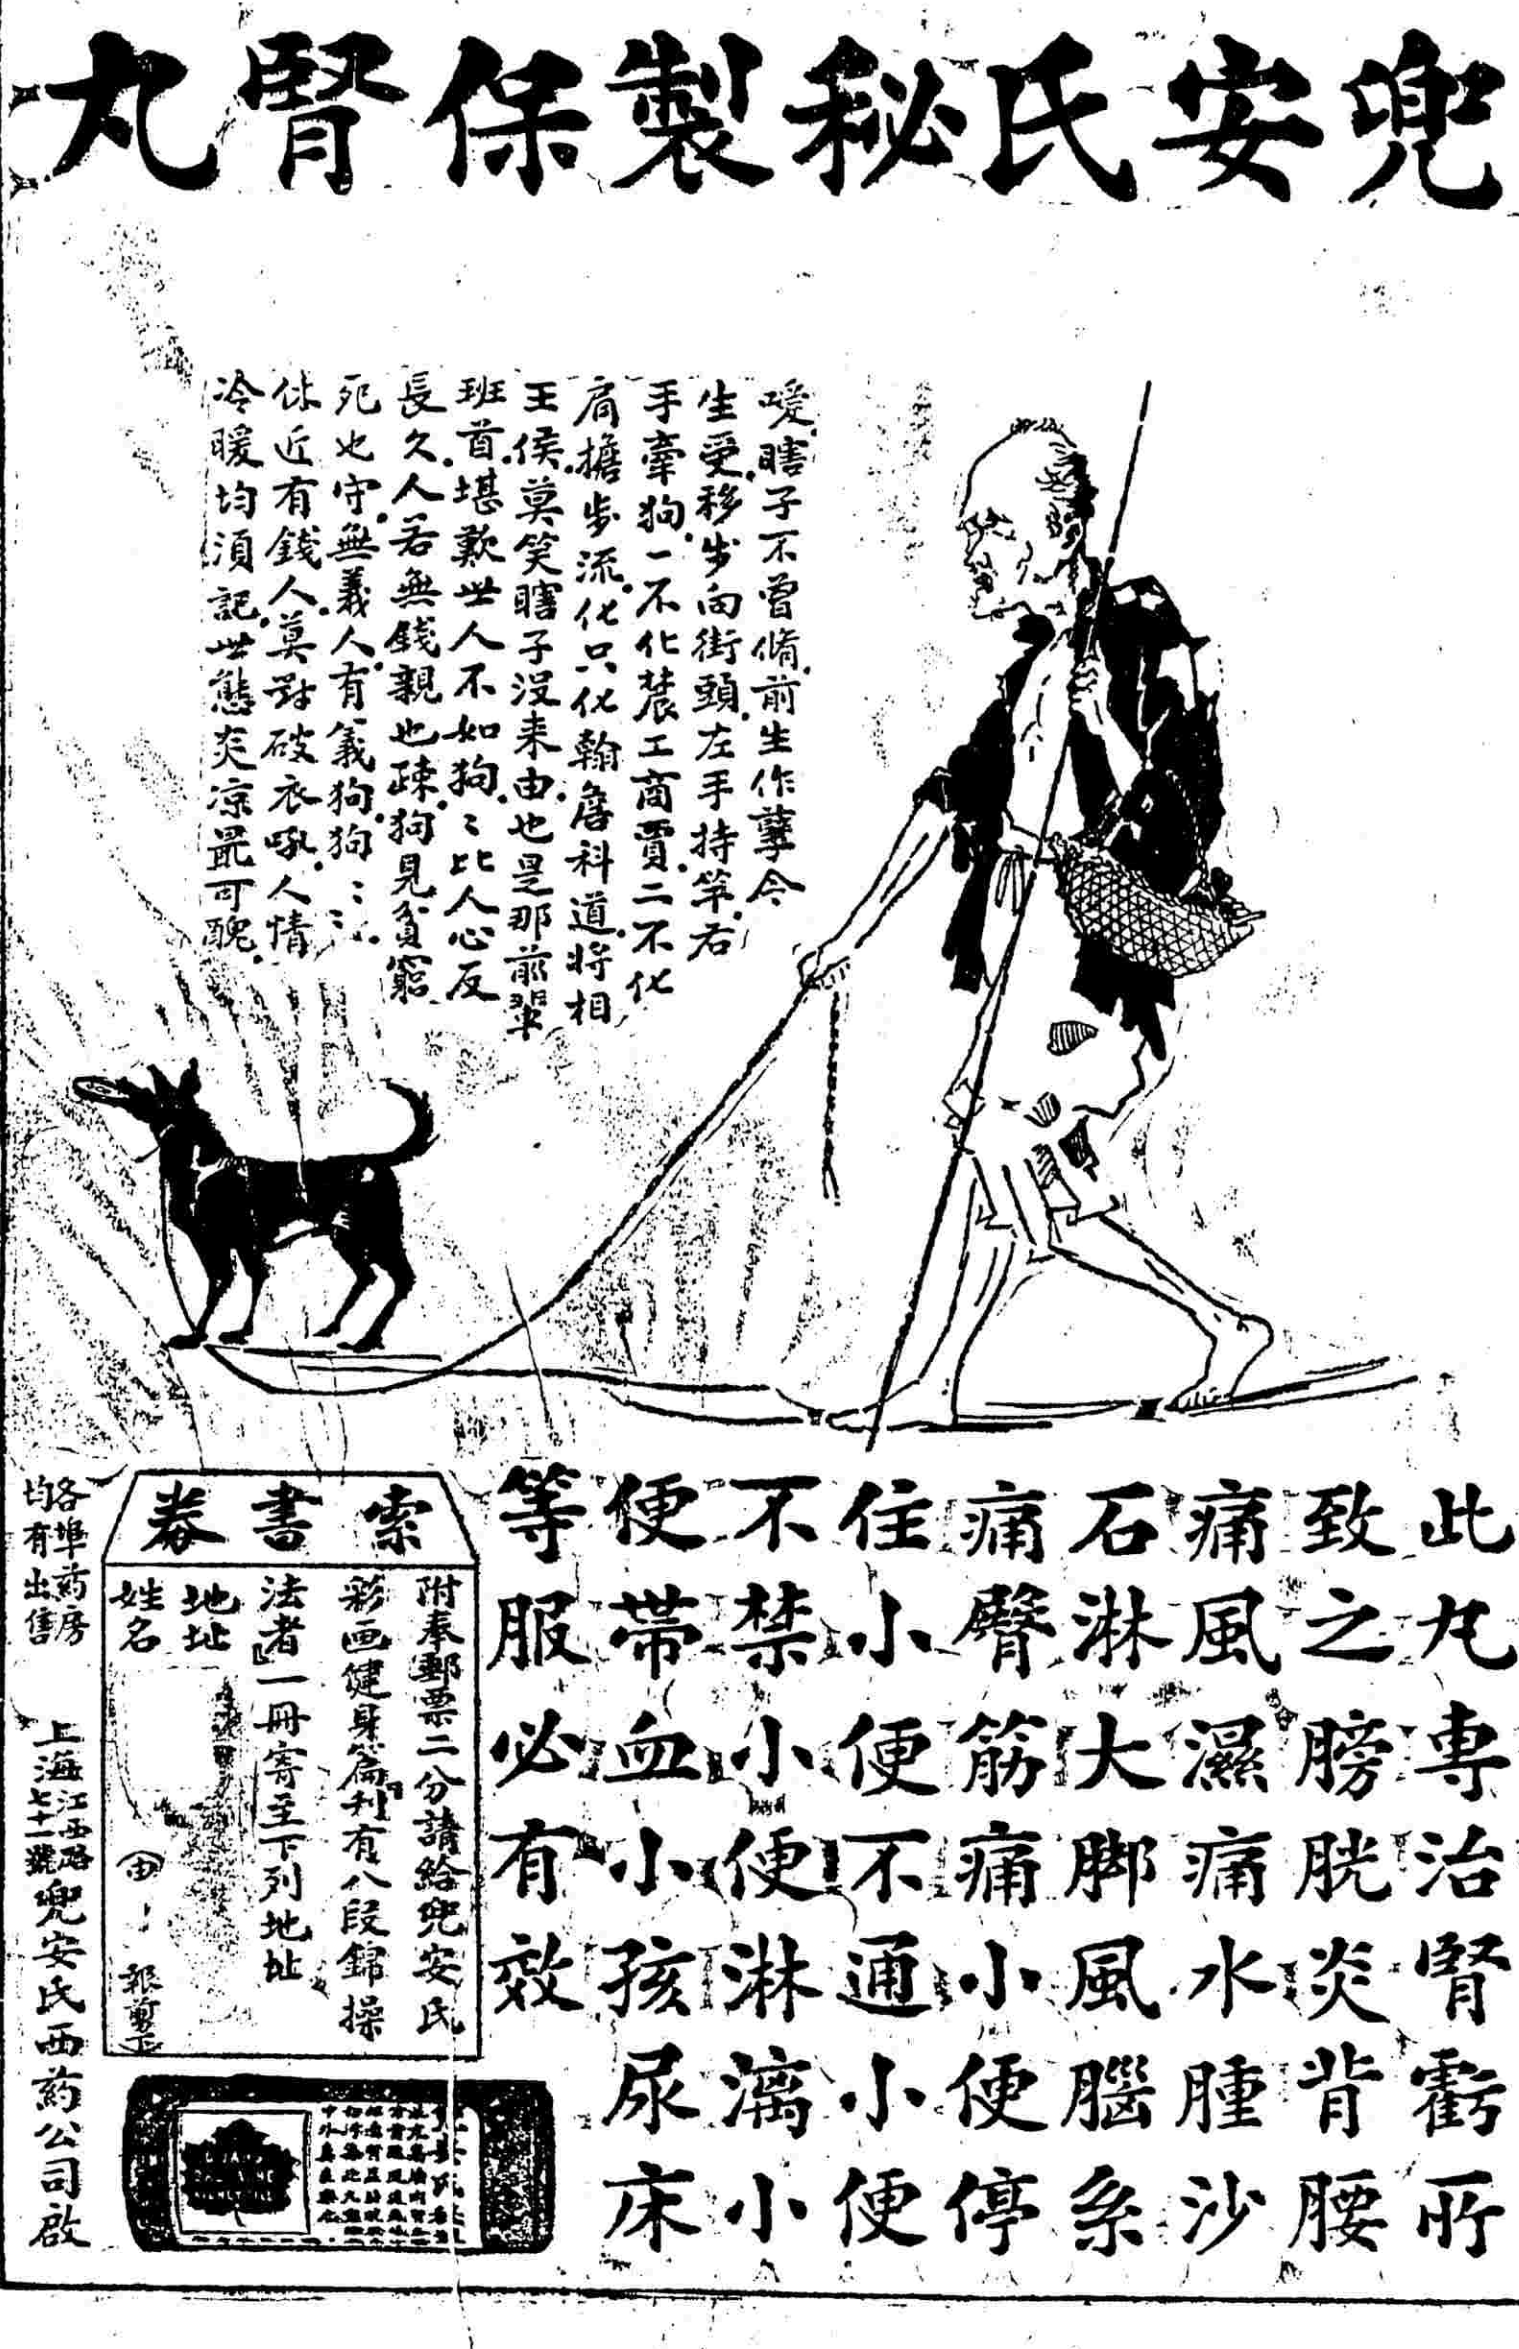 兜安氏秘製保腎丸
嗳瞎子不曾脩前生作孽今
生受移步向街頭左手持竿右
手牽狗一不化農工商賈二不化
肩擔步流化只化翰詹科道將相
王侯莫笑瞎子沒来由也是那前輩
班首堪歎世人不如狗狗〻比人心反
長久人若無錢親也疎狗見貧窮
死也守無義人有義狗狗〻
休近有錢人莫對破衣吼人情
冷暖均須記世態炎凉最可醜
此丸専治腎虧所
致之膀胱炎背腰
痛風濕痛水腫沙
石淋大脚風腦系
痛臀筋痛小便停
住小便不通小便
不禁小便淋漓小
便带血小孩尿床
等服必有效
索書券
附奉郵票二分請給兜安氏
彩画健身篇刋有八段錦操
法者一冊寄至下列地址
地址
姓名
各埠葯房
均有出售
上海江西路
七十一號
兜安氏西葯公司啟